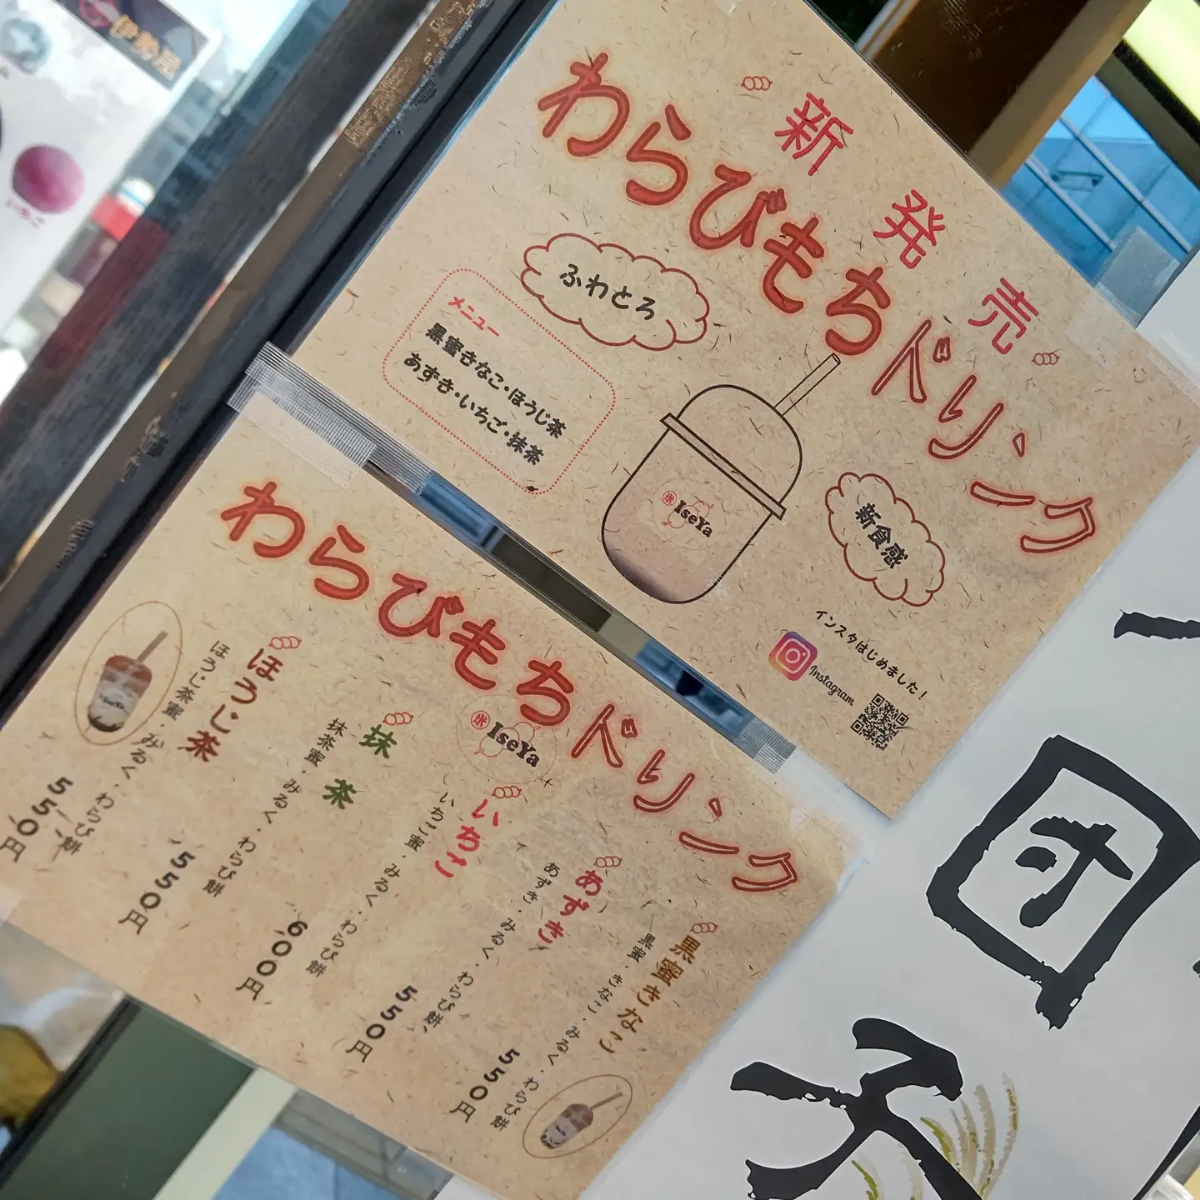 伊勢屋
いちご
新発売
わらびもちドリンク
ふわとろ
メニュー
黒蜜きなこ・ほうじ茶
あずき・いちご・抹茶
IseYa
新食感
インスタはじめました！
Instagram
わらびもちドリンク
IseYa
黒蜜きなこ
黒蜜・きなこ・みるく・わらび餅
550円
あずき
あずき・みるく・わらび餅
550円
いちご
いちご蜜・みるく・わらび餅
600円
抹茶
抹茶蜜・みるく・わらび餅
550円
ほうじ茶
ほうじ茶蜜・みるく・わらび餅
550円
団